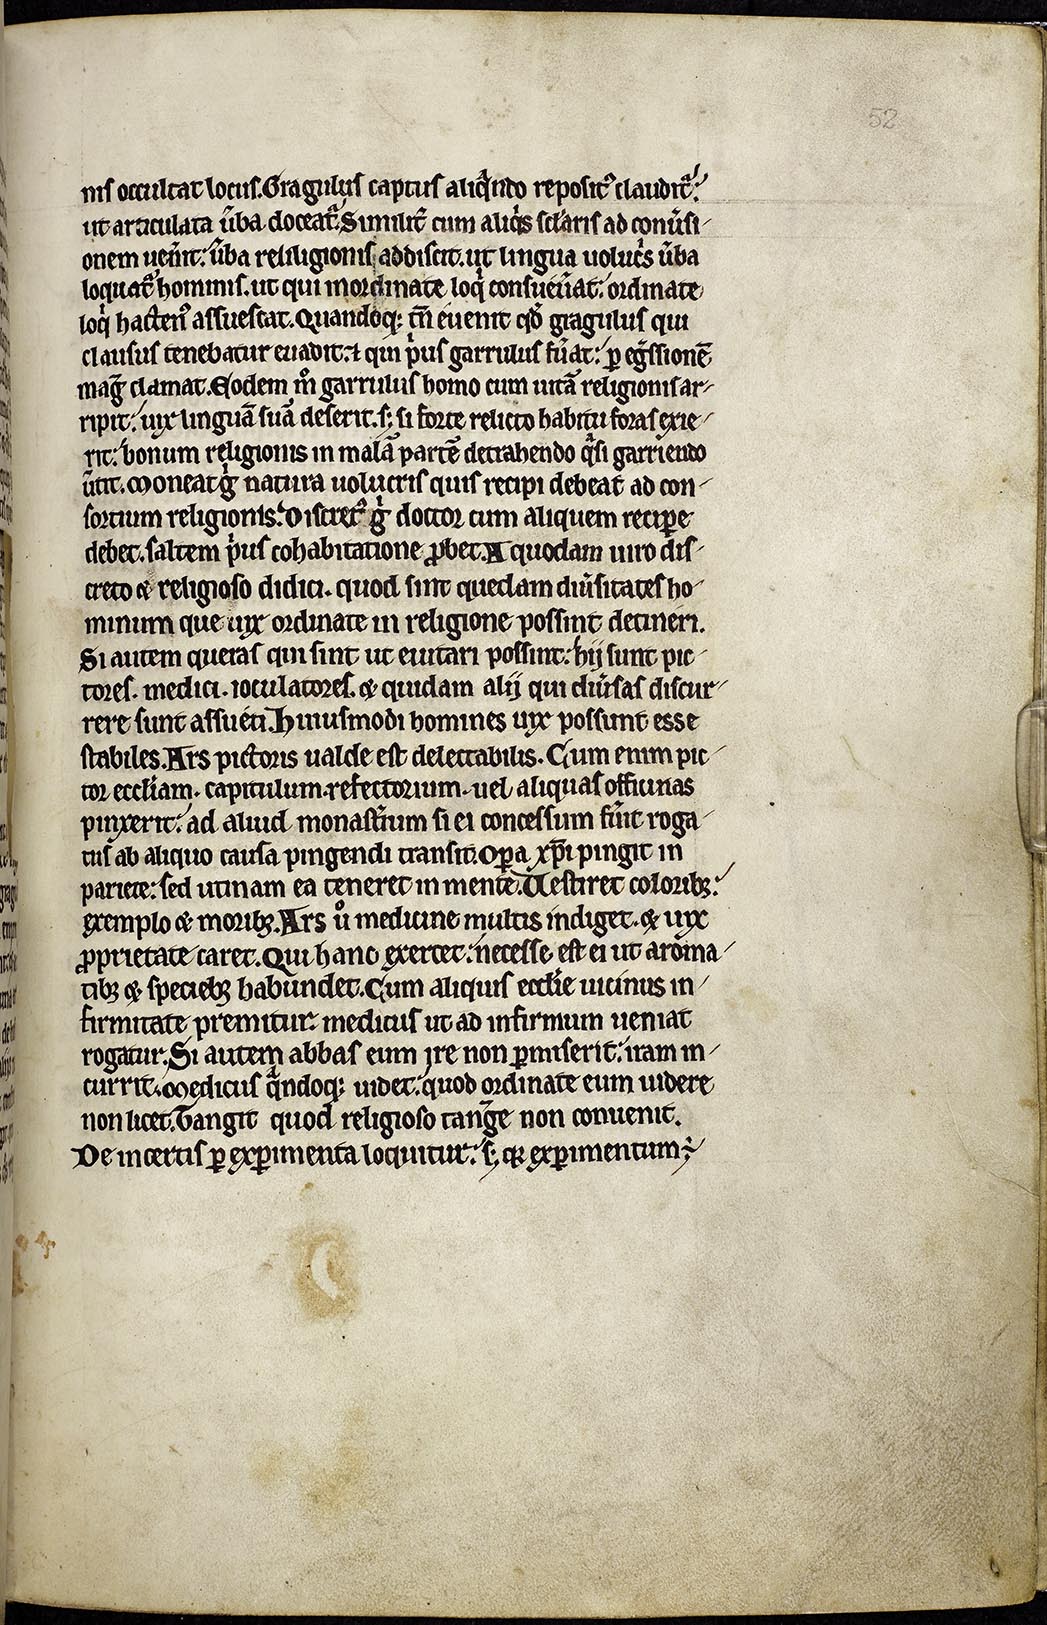 52
nis occultat locus. Gragulus captus aliqͣndo reposit᷒ claudit᷑:
ut articulata ũba doceat᷑. Similit̃ cum aliqͥs sclãris ad conũsi-
onem uen̾it: ũba reliligionis addiscit. ut lingua uolucͥs ũba
loquat᷑ hominis. ut qui inordinate loqͥ consueũat: ordinate
loqͥ hacten᷒ assuescat. Quandoqꝫ tñ euenit qđ gragulus qui
clausus tenebatur euadit. ⁊ qui pͥus garrulus fũat: ꝑ eg̃ssionẽ
magͥ clamat. Eodem mͦ garrulus homo cum uitã religionis ar-
ripit: uix linguã suã deserit. sꝫ si forte relicto habitu foras exie-
rit: bonum religionis in malã partẽ detrahendo qͣsi garriendo
ũtit. Moneat gͥ natura uolucris quis recipi debeat ad con-
sortium religionis. Discret᷒ gͥ doctor cum aliquem reciꝑe
debet. saltem pͥus cohabitatione ꝓbet. A quodam uiro dis-
creto & religioso didici. quod sint quedam diũsitates ho-
minum que uix ordinate in religione possint detineri.
Si autem queras qui sint ut euitari possint: hij sunt pic-
tores. medici. ioculatores. & quidam alij qui diũsas discur-
rere sunt assueti. Huiusmodi homines uix possunt esse
stabiles. Ars pictoris ualde est delectabilis. Cum enim pic-
tor eccłiam. capitulum. refectorium. uel aliquas officinas
pinxerit: ad aliud monastĩum si ei concessum fũit roga-
tus ab aliquo causa pingendi transit. Oꝑa xp̃i pingit in
pariete: sed utinam ea teneret in mente. Uestiret coloribꝫ:
exemplo & moribꝫ. Ars uͦ medicine multis indiget. & uix
ꝓprietate caret. Qui hanc exercet: necesse est ei ut aroma-
tibꝫ & speciebꝫ habundet. Cum aliquis eccłie uicinus in-
firmitate premitur: medicus ut ad infirmum ueniat
rogatur. Si autem abbas eum ire non ꝑmiserit: iram in-
currit. Medicus qͣndoqꝫ uidet: quod ordinate eum uidere
non licet. Tangit quod religioso tang̾e non conuenit.
De incertis ꝑ exꝑimenta loquitur: sꝫ qꝛ exꝑimentum